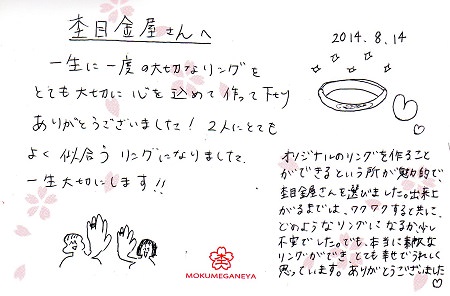 杢目金屋さんへ
2014.8.14
一生に一度の大切なリングを
とても大切に心を込めて作って下さり
ありがとうございました！2人にとても
よく似合うリングになりました。
一生大切にします!!
オリジナルのリングを作ること
ができるという所が魅力的で、
杢目金屋さんを選びました。出来上
がるまでは、ワクワクすると共に、
どのようなリングになるか少し
不安でした。でも、本当に素敵な
リングができ、とても幸せでうれしく
思っています。ありがとうございました
MOKUMEGANEYA